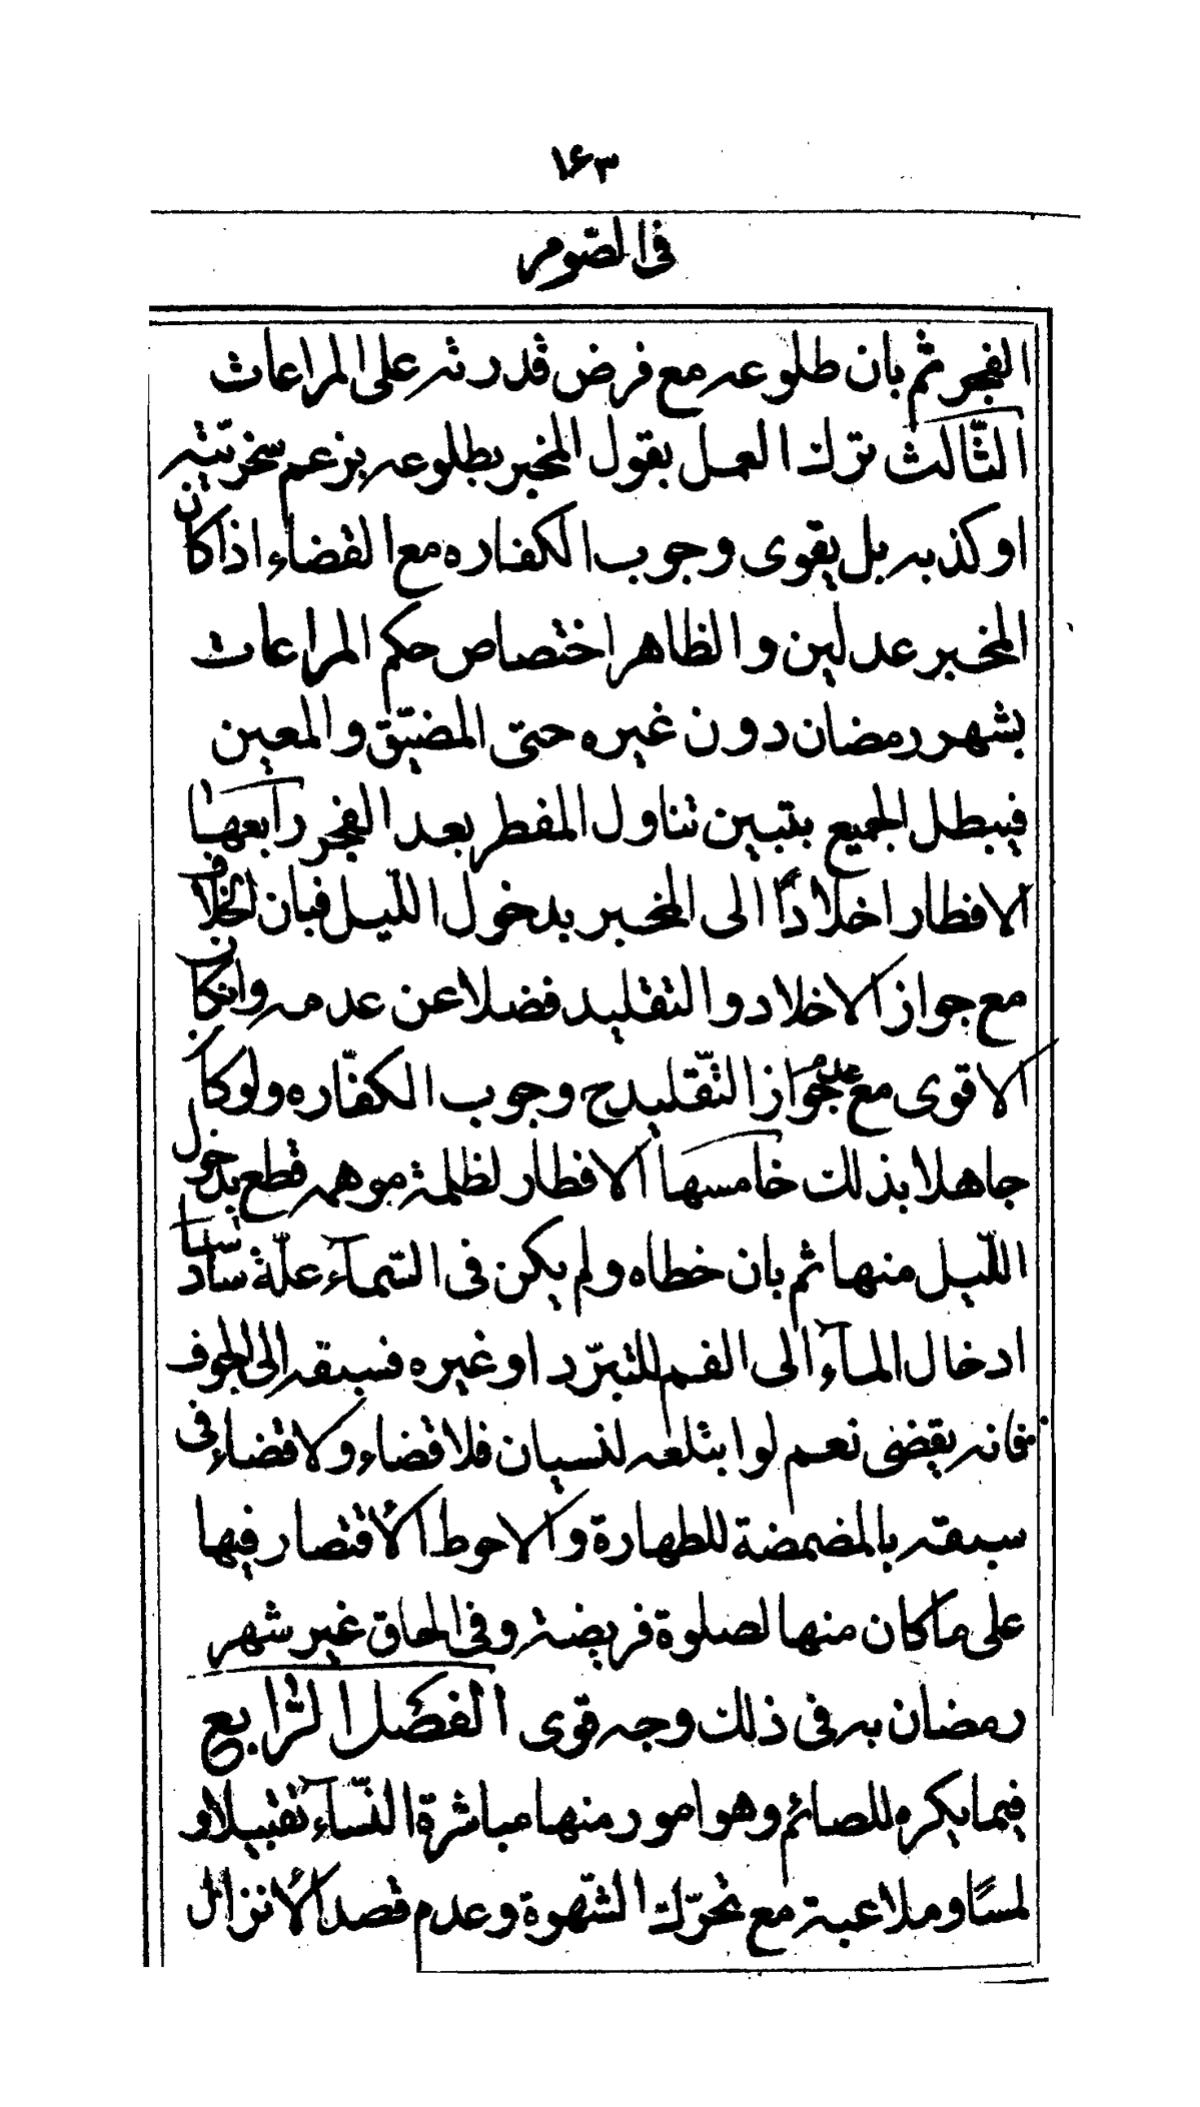 ۱۶۳
فی الصّوم
الفجر ثم بان طلوعه مع فرض قدرته علی المراعات
الثّالث ترک العمل بقول المخبر بطلوعه بزعم سخریّته
او کذبه بل یقوی وجوب الکفاره مع القضاء اذا کان
المخبر عدلین والظاهر اختصاص حکم المراعات
بشهر رمضان دون غیره حتی المضیّق والمعین
فیبطل الجمیع بتبین تناول المفطر بعد الفجر رابعها
الافطار اخلاداً الی المخبر بدخول اللّیل فبان الخلاف
مع جواز الاخلاد والتقلید فضلا عن عدمه وان کان
الاقوی مع عدم جواز التّقلید ح وجوب الکفّاره ولو کان
جاهلا بذلک خامسها الافطار لظلمة موهمه قطع بدخول
اللّیل منها ثم بان خطاه ولم یکن فی السّمآء علّة سادسها
ادخال المآء الی الفم للتبرّد او غیره فسبقه الی الجوف
فانه یقضی نعم لو ابتلعه لنسیان فلا قضاء ولا قضاء فی
سبقه بالمضمضة للطهارة والاحوط الأقتصار فیها
علی ما کان منها لصلوة فریضة وفی الحاق غیر شهر
رمضان به فی ذلک وجه قوی الفصل الرّابع
فیما یکره للصائم وهو امور منها مباشرة النّسآء تقبیلا و
لمسًا وملاعبة مع تحرّک الشّهوة وعدم قصد الأنزال